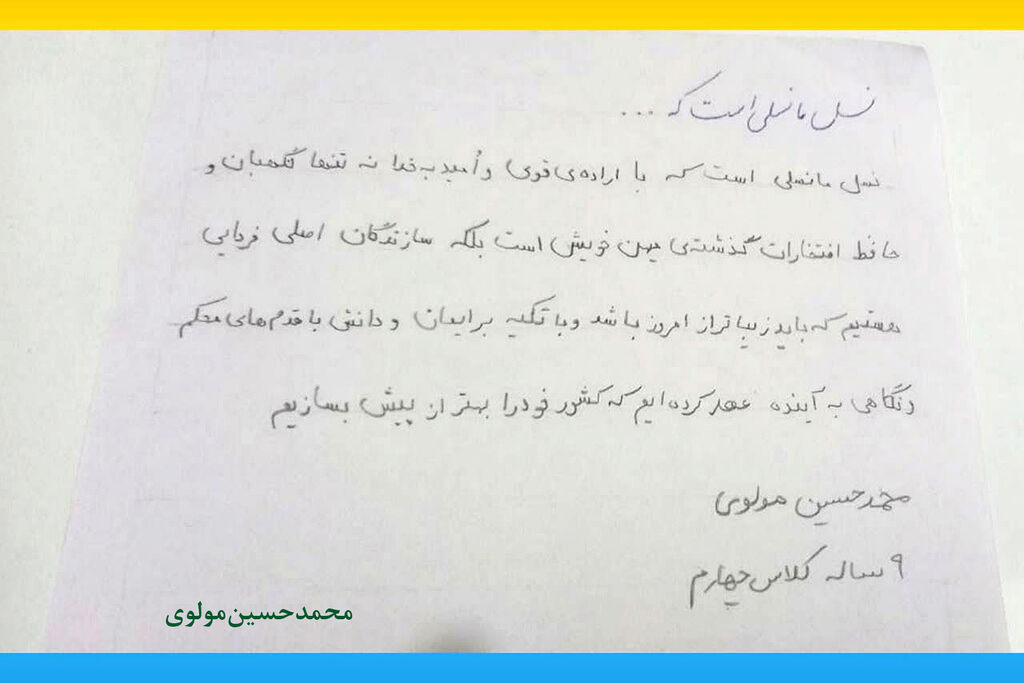 نسل ما نسلی است که ...
نسل ما نسلی است که با اراده‌ی قوی و اُمید به خدا نه تنها نگهبان و
حافظ افتخارات گذشته‌ی میهن خویش است بلکه سازندگان اصلی فردایی
هستیم که باید زیباتر از امروز باشد و با تکیه بر ایمان و دانش با قدم‌های محکم
و نگاهی به آینده عهد کرده ایم که کشور خود را بهتر از پیش بسازیم
محمد حسین مولوی
۹ ساله کلاس چهارم
محمدحسین مولوی